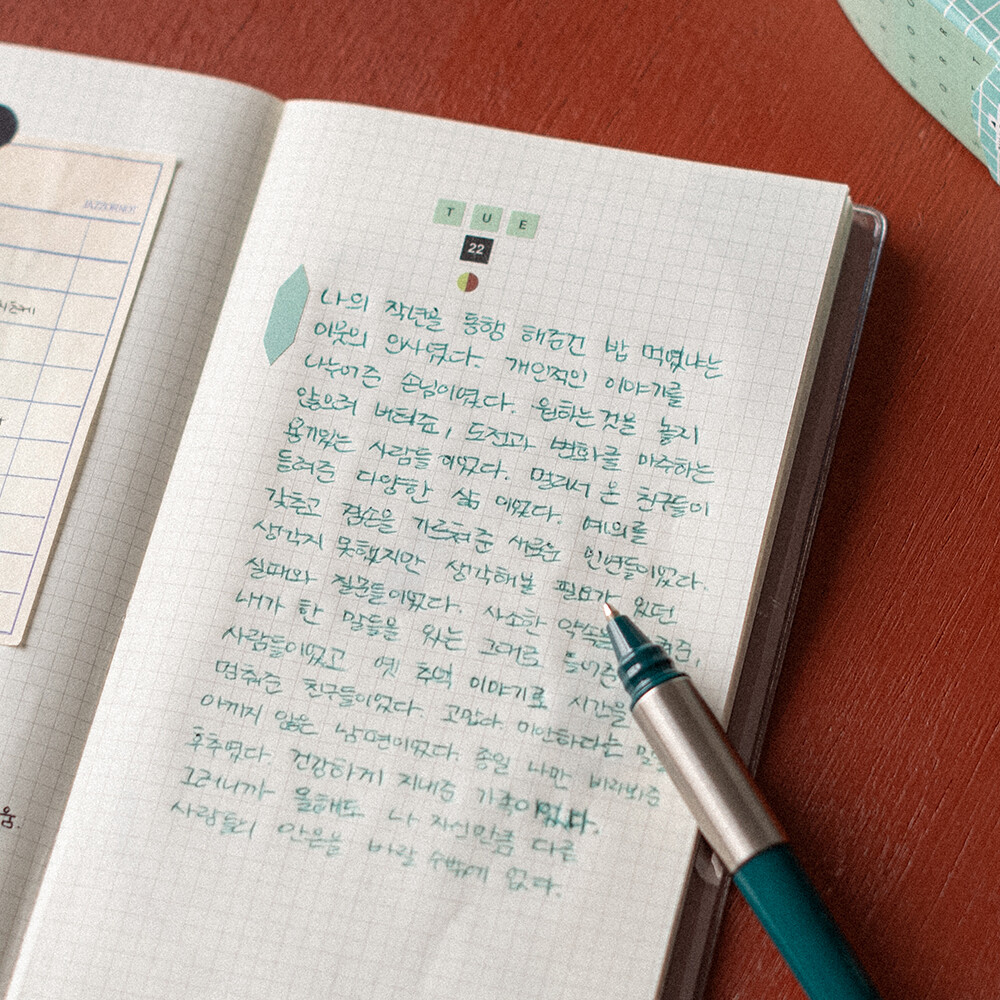 JAZZOR NOT
T U E
22
나의 작년을 동행 해준건 밥 먹였냐는
이웃의 인사였다. 개인적인 이야기를
나누어준 손님이였다. 원하는것을 놓지
않으려 버텨준, 도전과 변화를 마주하는
용기있는 사람들이였다. 멀리서 온 친구들이
들려준 다양한 삶이였다. 예의를
갖추고 겸손을 가르쳐준 새로운 인연들이였다.
생각지 못했지만 생각해볼 필요가 있던
실패와 질문들이였다. 사소한 약속을
내가 한 말들을 있는 그대로 들어준
사람들이였고 옛 추억 이야기로 시간을
멈춰준 친구들이였다. 고맙다 미안하다는
아끼지 않은 남편이였다. 종일 나만 바라봐준
후추였다. 건강하게 지내준 가족이였다.
그러니까 올해도 나 자신만큼 다른
사람들의 안온을 바랄 수밖에 없다.
움.